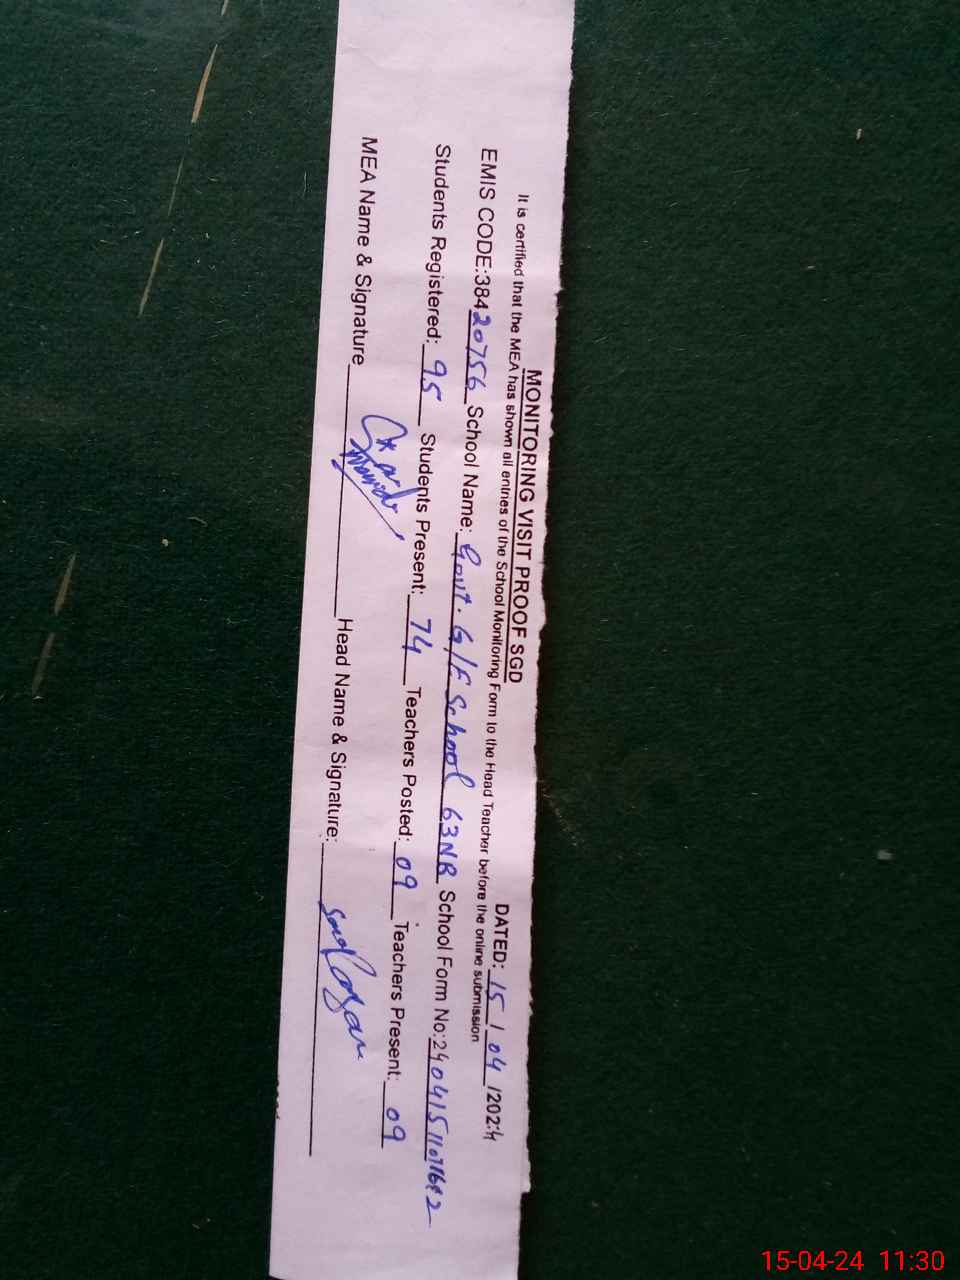 MONITORING VISIT PROOF SGD
DATED: 15 / 04 /2024
It is certified that the MEA has shown all entries of the School Monitoring Form to the Head Teacher before the online submission
EMIS CODE:38420756 School Name: Govt. G/E School 63NB School Form No:24041511
Students Registered: 95 Students Present: 74 Teachers Posted: 09 Teachers Present: 09
MEA Name & Signature Head Name & Signature:
15-04-24 11:30